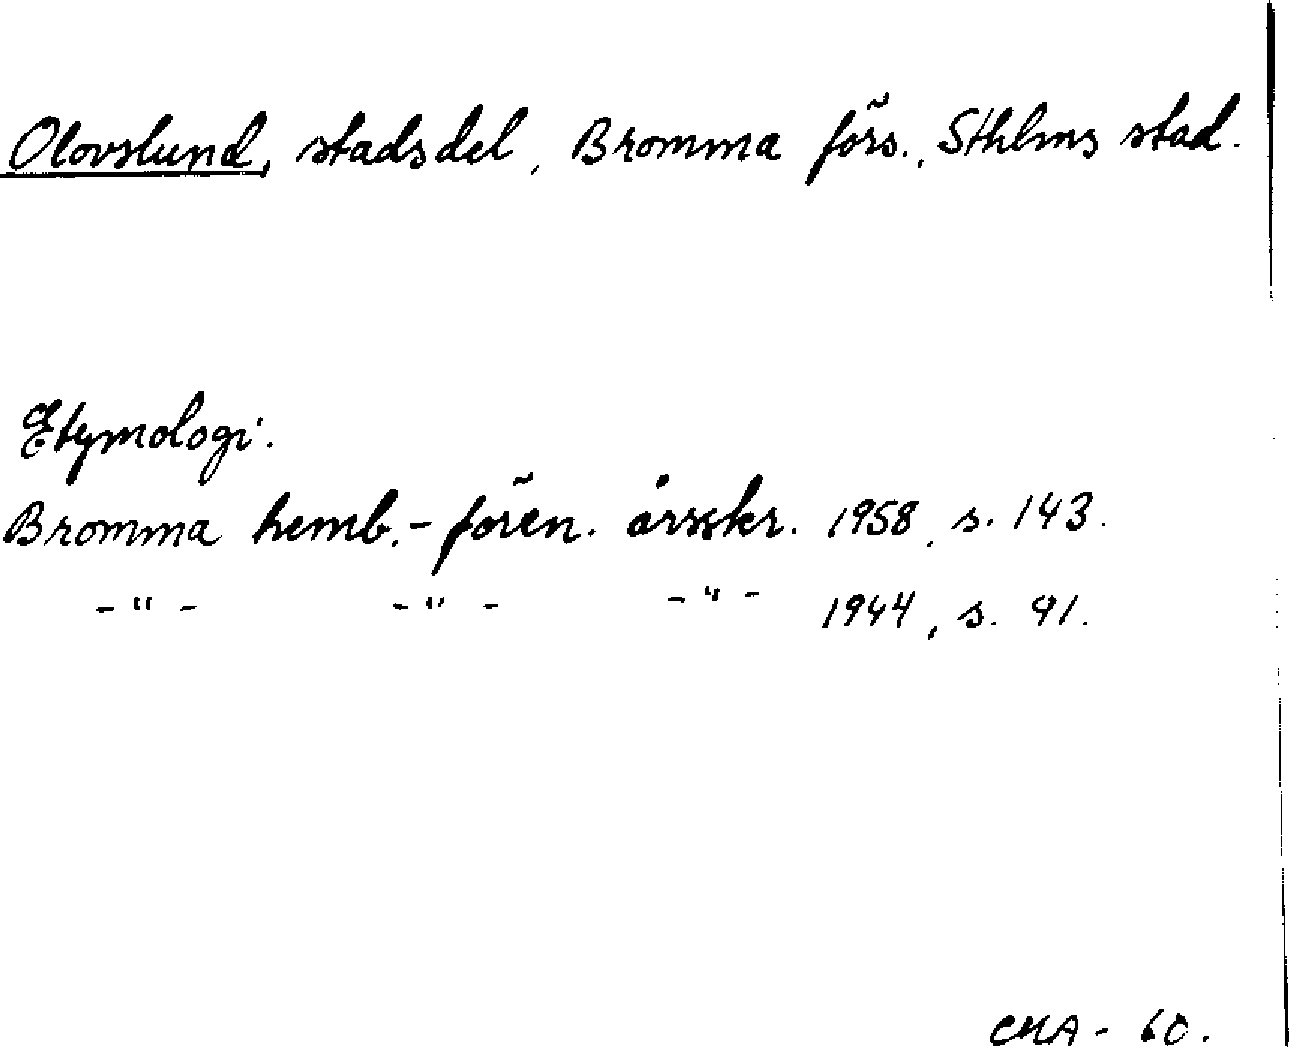 Olovslund, stadsdel, Bromma förs., Sthlms stad.
Etymologi.
Bromma hemb.-fören. årsskr. 1958, s. 143.
-"- -"- -"- 1944, s. 91.
CMA - 60.